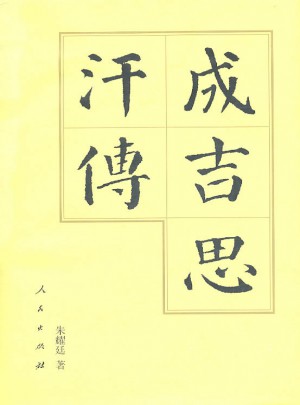 成吉思
汗傳
朱耀廷 著
人民出版社